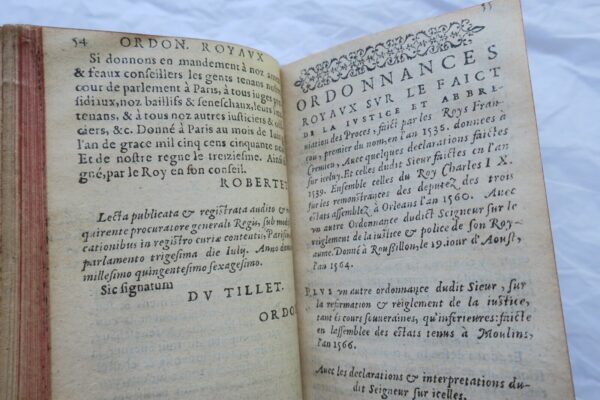 54 ORDON. ROYAVX
Si donnons en mandement à noz amez
& feaux conseillers les gents tenans nostre
cour de parlement à Paris, à tous iuges pre-
sidiaux, noz baillifs & seneschaux, leurs lieu-
tenans, & à tous noz autres iusticiers & offi-
ciers, &c. Donné à Paris au mois de
l'an de grace mil cinq cens cinquante
Et de nostre regne le treziesme. Ainsi
gné, par le Roy en son conseil.
ROBERTET
Lecta publicata & registrata audito &
quirente procuratore generali Regis, sub modi
cationibus in registro curiæ contentis, Parisiis
parlamento trigesima die Iuly. Anno domi
millesimo quingentesimo sexagesimo.
Sic signatum
DV TILLET.
ORDO
55
ORDONNANCES
ROYAUX SVR LE FAICT
DE LA IVSTICE ET ABBRE-
uiation des Proces, faict par les Roys Fran-
çou, premier du nom, en l'an 1535. données à
Cremieu. Auec quelques declarations faictes
sur iceluy. Et celles dudict Sieur faictes en l'an
1539. Ensemble celles du Roy Charles IX.
sur les remonstrances des deputez des trois
estats assemblez à Orleans l'an 1560. Auec
vn autre Ordonnance dudict Seigneur sur le
reiglement de la iustice & police de son Roy-
aume. Donné à Roussillon, le 19. iour d'Aoust,
l'an 1564.
PLVS vn autre ordonnance dudit Sieur, sur
la reformation & reiglement de la iustice,
tant és cours souueraines, qu'inferieures: faicte
en l'assemblee des estats tenus à Moulins,
l'an 1566.
Auec les declarations & interpretations du-
dit Seigneur sur icelles.